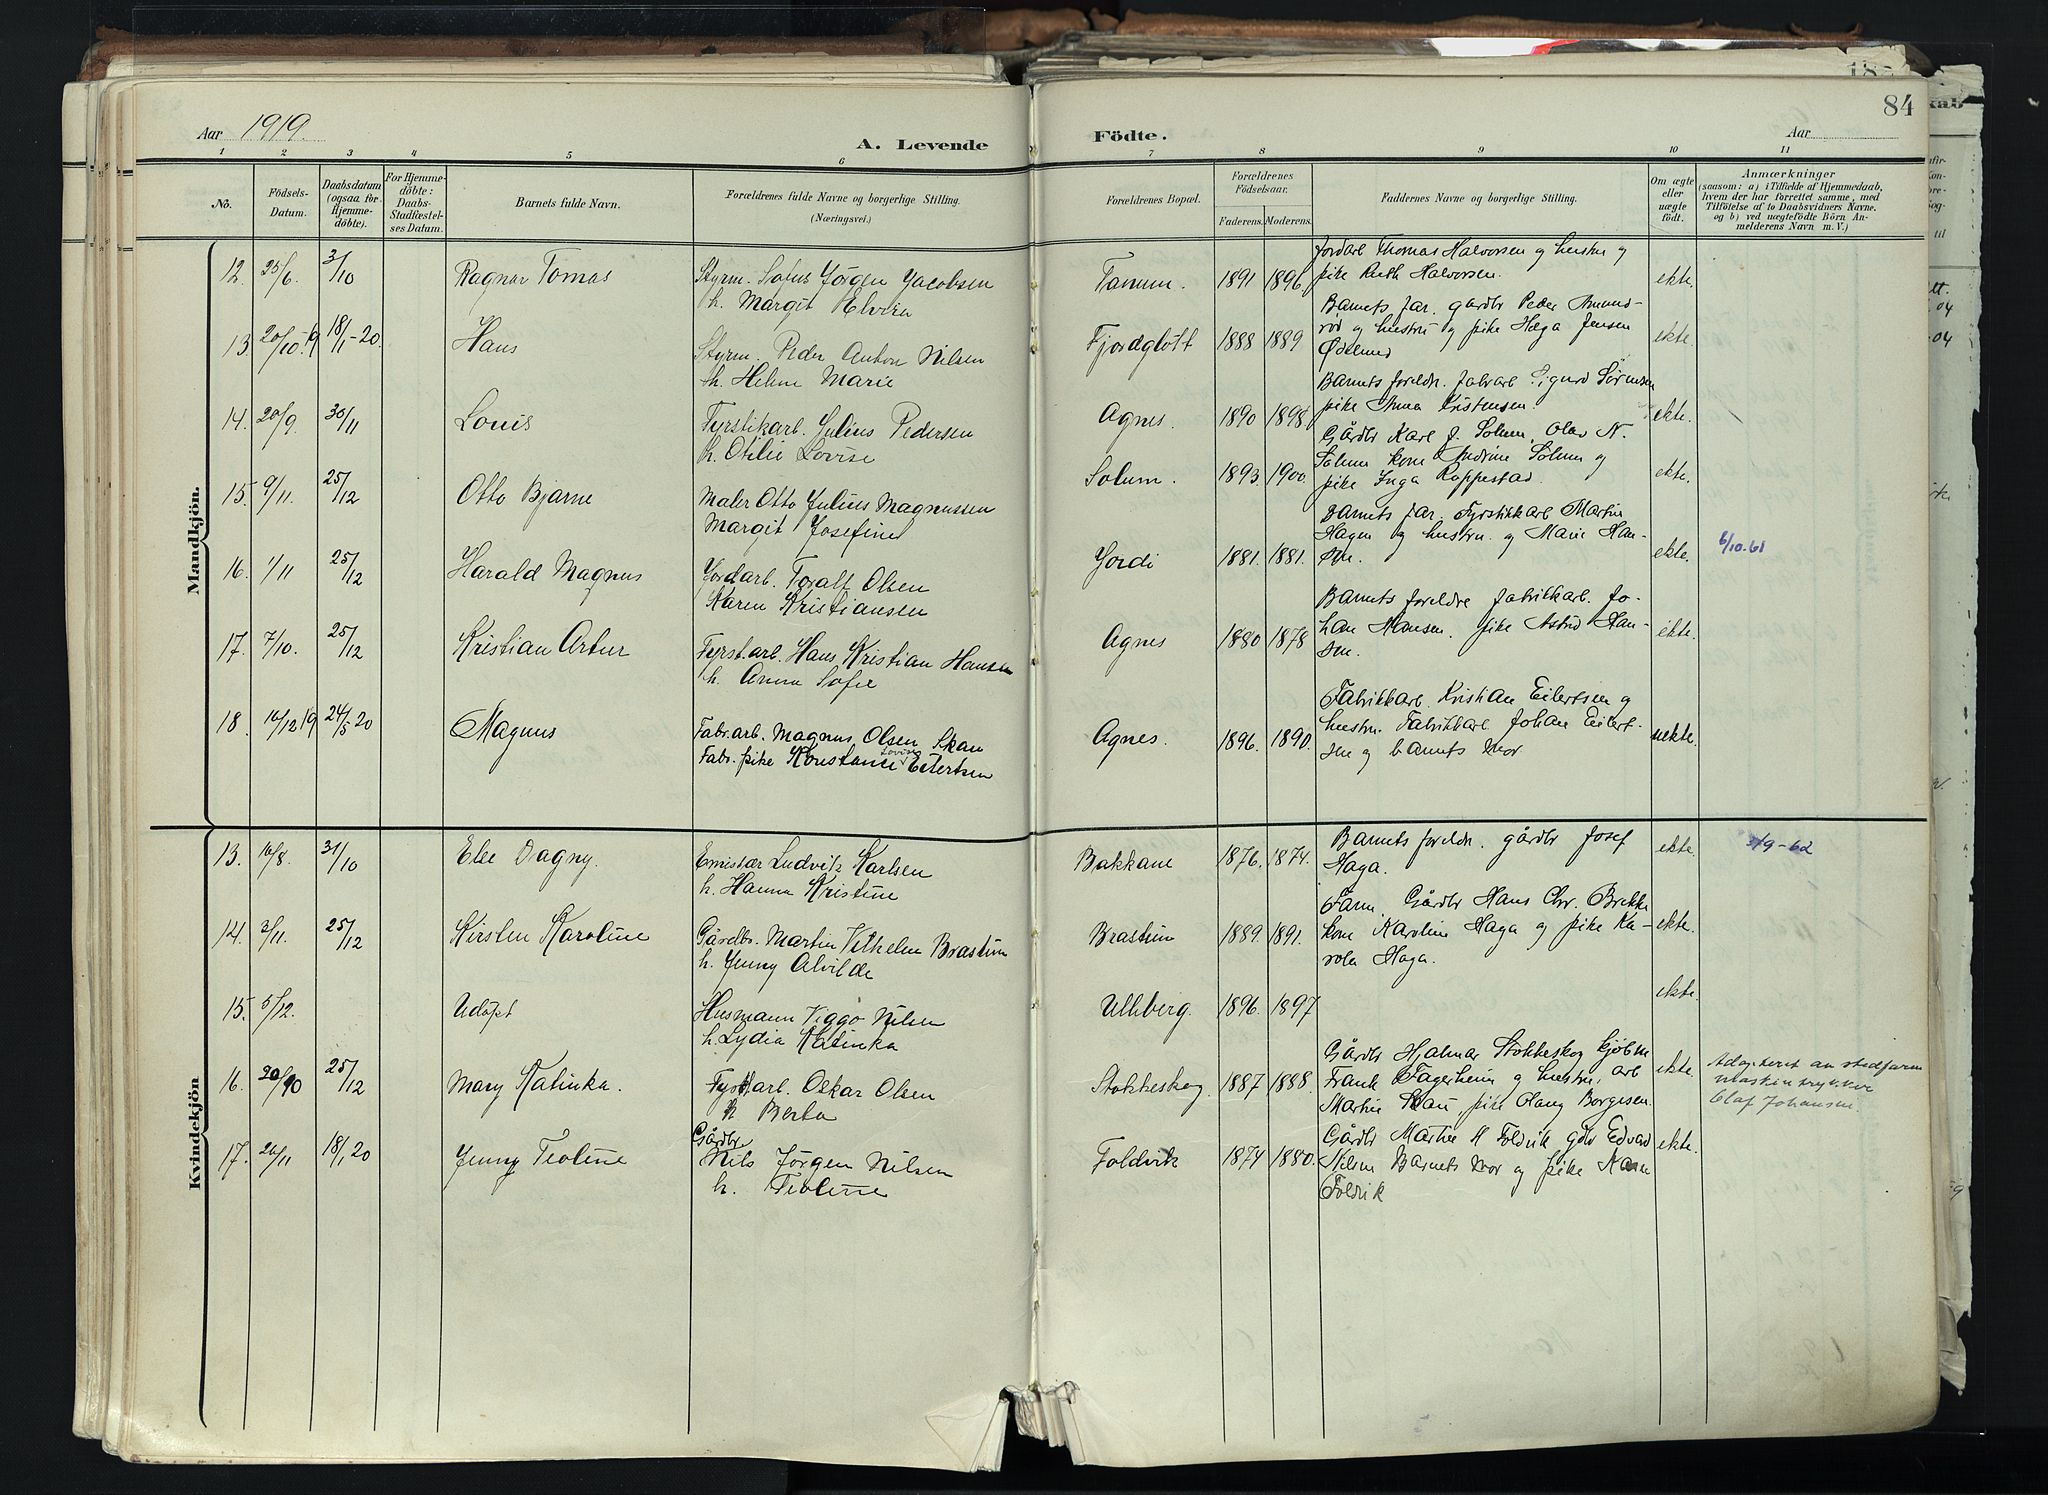 Aar 1919.
A. Levende
Födte.
Aar
84
1 2 3 4 5 6 7 8 9 10 11
No.
Födsels-Datum.
Daabsdatum (ogsaa for Hjemme-döbte).
For Hjemme-döbte: Daabs-Stadfæstel-ses Datum.
Barnets fulde Navn.
Forældrenes fulde Navne og borgerlige Stilling.
(Næringsvei.)
Forældrenes Bopæl.
Forældrenes Födselsaar.
Faderens. Moderens.
Faddernes Navne og borgerlige Stilling.
Om ægte eller uægte födt.
Anmærkninger
(saasom: a) i Tilfælde af Hjemmedaab,
hvem der har forrettet samme, med
Tilföielse af to Daabsvidners Navne.
og b) ved uægtefödte Börn An-
melderens Navn m. V.)
Mandkjön.
12. 25/6. 3/10 Ragnar Tomas Styrm. Sofus Jörgen Jacobsen
h. Margit Elvira
Tanum. 1891 1896 Jordarb Thomas Halvorsen og hustru og
pike Ruth Halvorsen. ekte.
13. 20/10-19 18/1-20. Hans Styrm. Peder Anton Nilsen
h. Helene Marie
Fjordgløtt 1888 1889 Barnets far. gårdbr Peder Amund-
rød og hustru og pike Helga Jensen
Ødelund ekte.
14. 20/9. 30/11 Louis Fyrstikarb. Julius Pedersen
h. Otilie Lovise
Agnes. 1890 1898. Barnets foreldr. fabrarb Sigurd Sörensen
pike Anna Kristensen. ekte.
15. 9/11. 25/12 Otto Bjarne Maler Otto Julius Magnussen
Margit Josefine
Solum. 1893. 1900. Gårdbr Karl J. Solum, Olav N.
Solum kone Andrine Solum og
pike Inga Rappestad. ekte.
16. 1/11 25/12 Harald Magnus Jordarb. Toralf Olsen
Karen Kristiansen
Jordi 1881. 1881. Barnets far. Fyrstikkarb Martin
Hagen og hustru. og Marie Han-
sen. ekte. 6/10-61
17. 7/10. 25/12 Kristian Artur Fyrst.arb. Hans Kristian Hansen
h. Anna Sofie
Agnes 1880 1878 Barnets foreldre fabrikkarb. Jo-
han Hansen. pike Astrid Han-
sen. ekte.
18. 16/12 19 24/5 20 Magnus Fabr.arb. Magnus Olsen Skau
Fabr. pike Konstance Lovise Eilertsen
Agnes. 1896. 1890. Fabrikkarb. Kristian Eilertsen og
hustru. Fabrikkarb Johan Eilert-
sen og barnets mor uekte.
Kvindekjön
13. 16/8. 31/10 Else Dagny. Emissær Ludvik Karlsen
h. Hanna Kristine
Bakkane 1876. 1874. Barnets foreldr. gårdbr Josef
Haga. ekte 3/9-62
14. 3/11. 25/12 Kirsten Karoline Gårdbr. Martin Vilhelm Brastein
h. Jenny Alvilde
Brastein 1889. 1891. Farm. Gårdbr Hans Chr. Brekke
kone Karoline Haga og pike Ka-
rola Haga. ekte.
15. 5/12. Udöpt Husmann Viggo Nilsen
h. Lydia Katinka
Ulleberg. 1896. 1897 ekte.
16. 20/10 25/12 Mary Katinka. Fyrstarb. Oskar Olsen
h Berta
Stokkeskog 1887 1888. Gårdbr Hjalmar Stokkeskog kjøbm
Frank Fagerheim og hustru, arb
Martin Skau, pike Olaug Borgesen. ekte. Adopteret av stedfaren
maskintrykker
Olaf Johansen.
17. 26/11 18/1 20 Jenny Teoline Gårdbr
Nils Jørgen Nilsen
h. Teoline
Foldvik 1874 1880. Gårdbr Martin M Foldvik gdbr Edvard
Nilsen Barnets mor og pike Karen
Foldvik ekte.